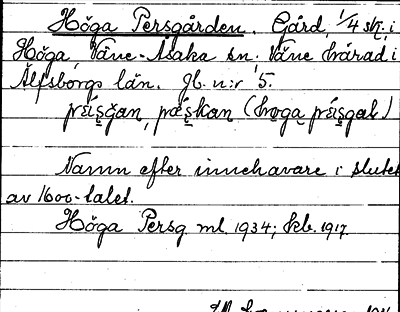 Höga Persgården. Gård, 1/4 skt. i
Höga, Väne-Åsaka sn. Väne härad i
Älfsborgs län. Jb. n:r 5.
Namn efter innehavare i slutet
av 1600-talet.
Höga Persg. ml. 1934; kb. 1917.